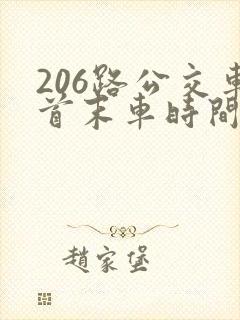 206路公交車
首末車時間
趙家堡